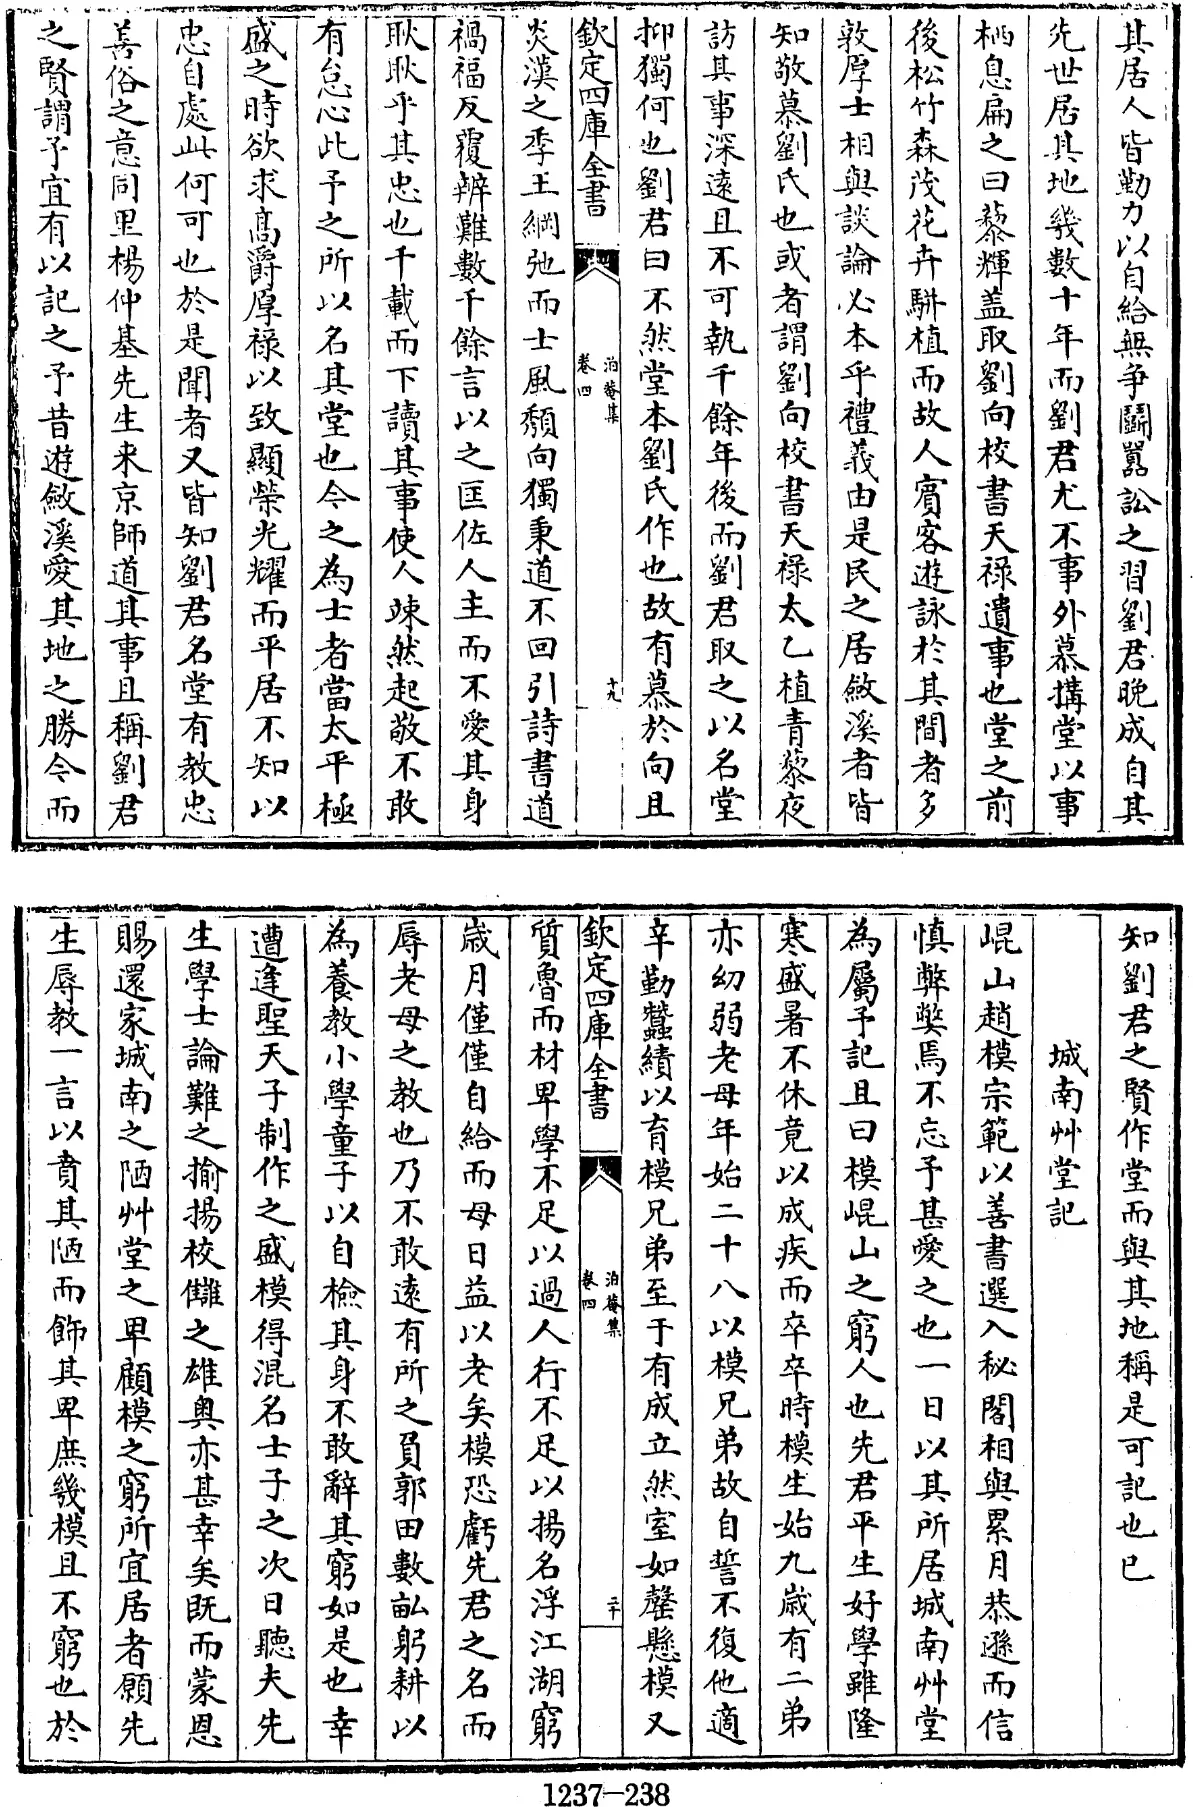 其居人皆勤力以自給無争鬬嚚訟之習劉君晚成自其
先世居其地幾數十年而劉君尤不事外慕搆堂以事
栖息扁之曰藜輝盖取劉向校書天禄遺事也堂之前
後松竹森茂花卉駢植而故人賔客遊詠於其間者多
敦厚士相與談論必本乎禮義由是民之居斂溪者皆
知敬慕劉氏也或者謂劉向校書天禄太乙植青藜夜
訪其事深遠且不可執千餘年後而劉君取之以名堂
抑獨何也劉君曰不然堂本劉氏作也故有慕於向且
欽定四庫全書
泊菴集
卷四
十九
炎漢之季王綱弛而士風頽向獨秉道不回引詩書道
禍福反覆辨難數千餘言以之匡佐人主而不愛其身
耿耿乎其忠也千載而下讀其事使人竦然起敬不敢
有怠心此予之所以名其堂也今之為士者當太平極
盛之時欲求髙爵厚禄以致顯榮光耀而平居不知以
忠自處此何可也於是聞者又皆知劉君名堂有教忠
善俗之意同里楊仲基先生来京師道其事且稱劉君
之賢謂予宜有以記之予昔遊斂溪愛其地之勝今而
知劉君之賢作堂而與其地稱是可記也已
城南艸堂記
崐山趙模宗範以善書選入秘閣相與累月恭遜而信
慎弊弊焉不忘予甚愛之也一日以其所居城南艸堂
為屬予記且曰模崐山之窮人也先君平生好學雖隆
寒盛暑不休竟以成疾而卒卒時模生始九歳有二弟
亦幼弱老母年始二十八以模兄弟故自誓不復他適
辛勤蠶績以育模兄弟至于有成立然室如罄懸模又
欽定四庫全書
泊菴集
卷四
二十
質魯而材卑學不足以過人行不足以揚名浮江湖窮
歳月僅僅自給而母日益以老矣模恐虧先君之名而
辱老母之教也乃不敢逺有所之負郭田數畝躬耕以
為養教小學童子以自檢其身不敢辭其窮如是也幸
遭逢聖天子制作之盛模得混名士子之次日聽夫先
生學士論難之揄揚校讎之雄奥亦甚幸矣既而蒙恩
賜還家城南之陋艸堂之卑顧模之窮所宜居者願先
生辱教一言以賁其陋而飾其卑庶幾模且不窮也於
1237-238